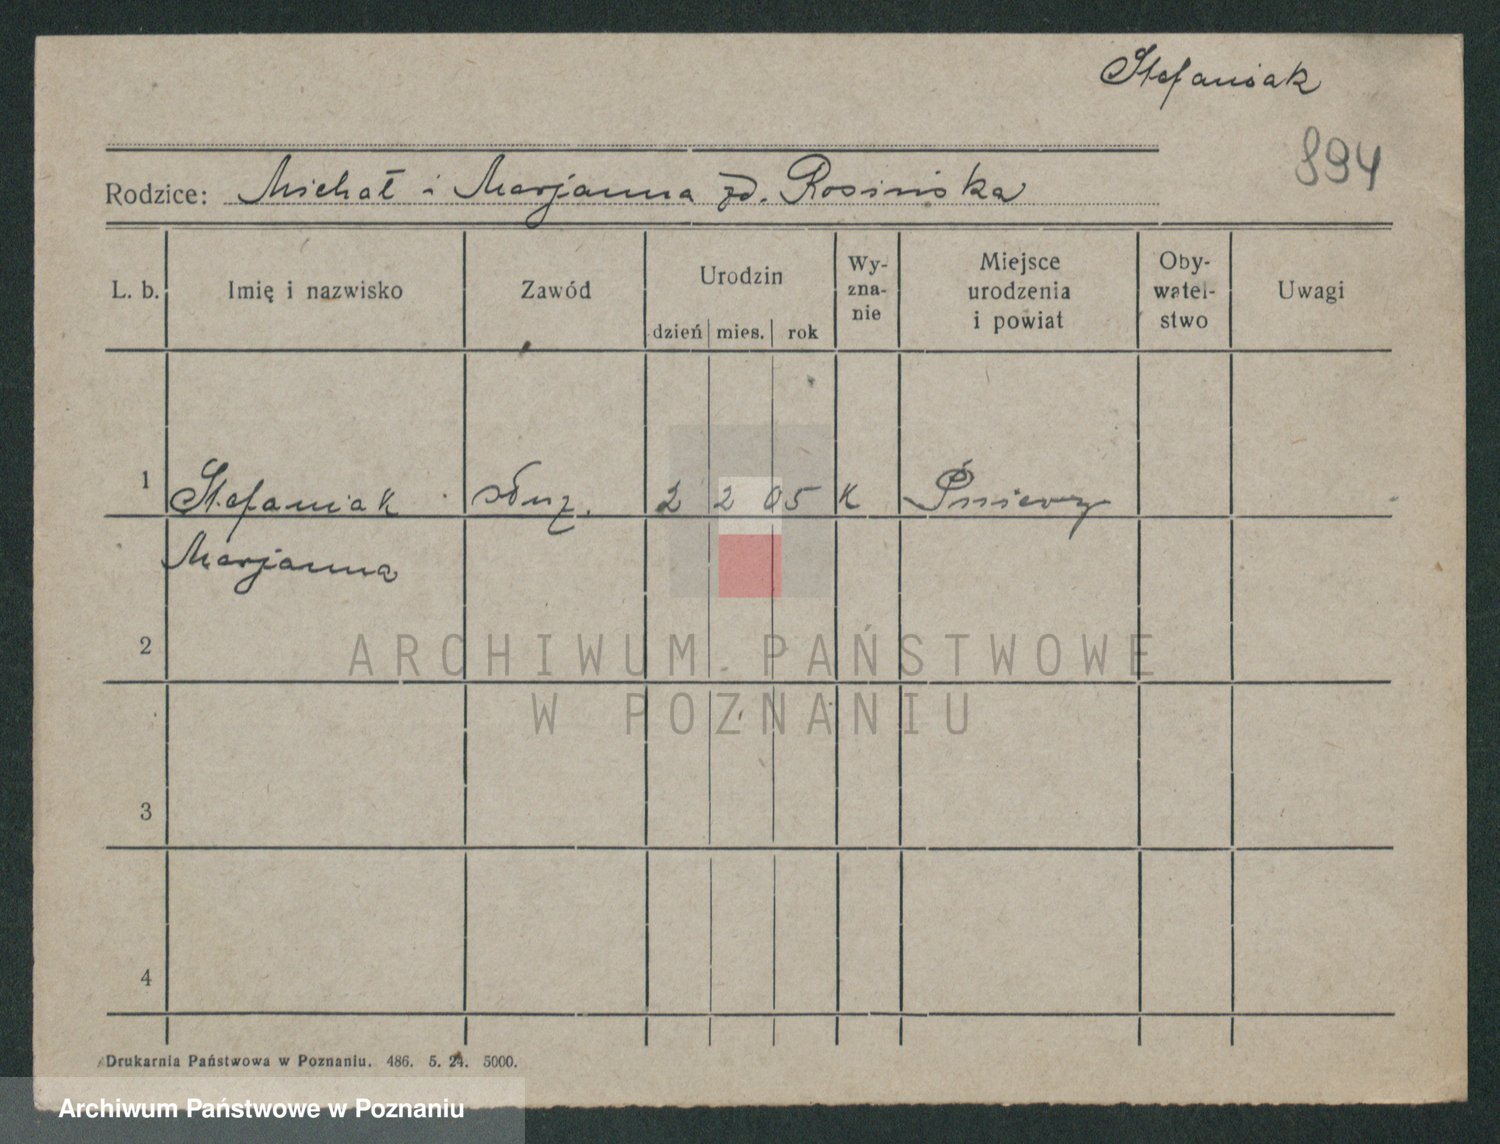 Stefaniak
894
Rodzice: Michał i Marjanna zd. Rosińska
L. b. Imię i nazwisko Zawód Urodzin dzień mies. rok Wy-zna-nie Miejsce urodzenia i powiat Oby-watel-stwo Uwagi
1 Stefaniak służ. 2 2 05 K Pniewy
Marjanna
2
ARCHIWUM PAŃSTWOWE
W POZNANIU
3
4
Drukarnia Państwowa w Poznaniu. 486. 5. 24. 5000.
Archiwum Państwowe w Poznaniu